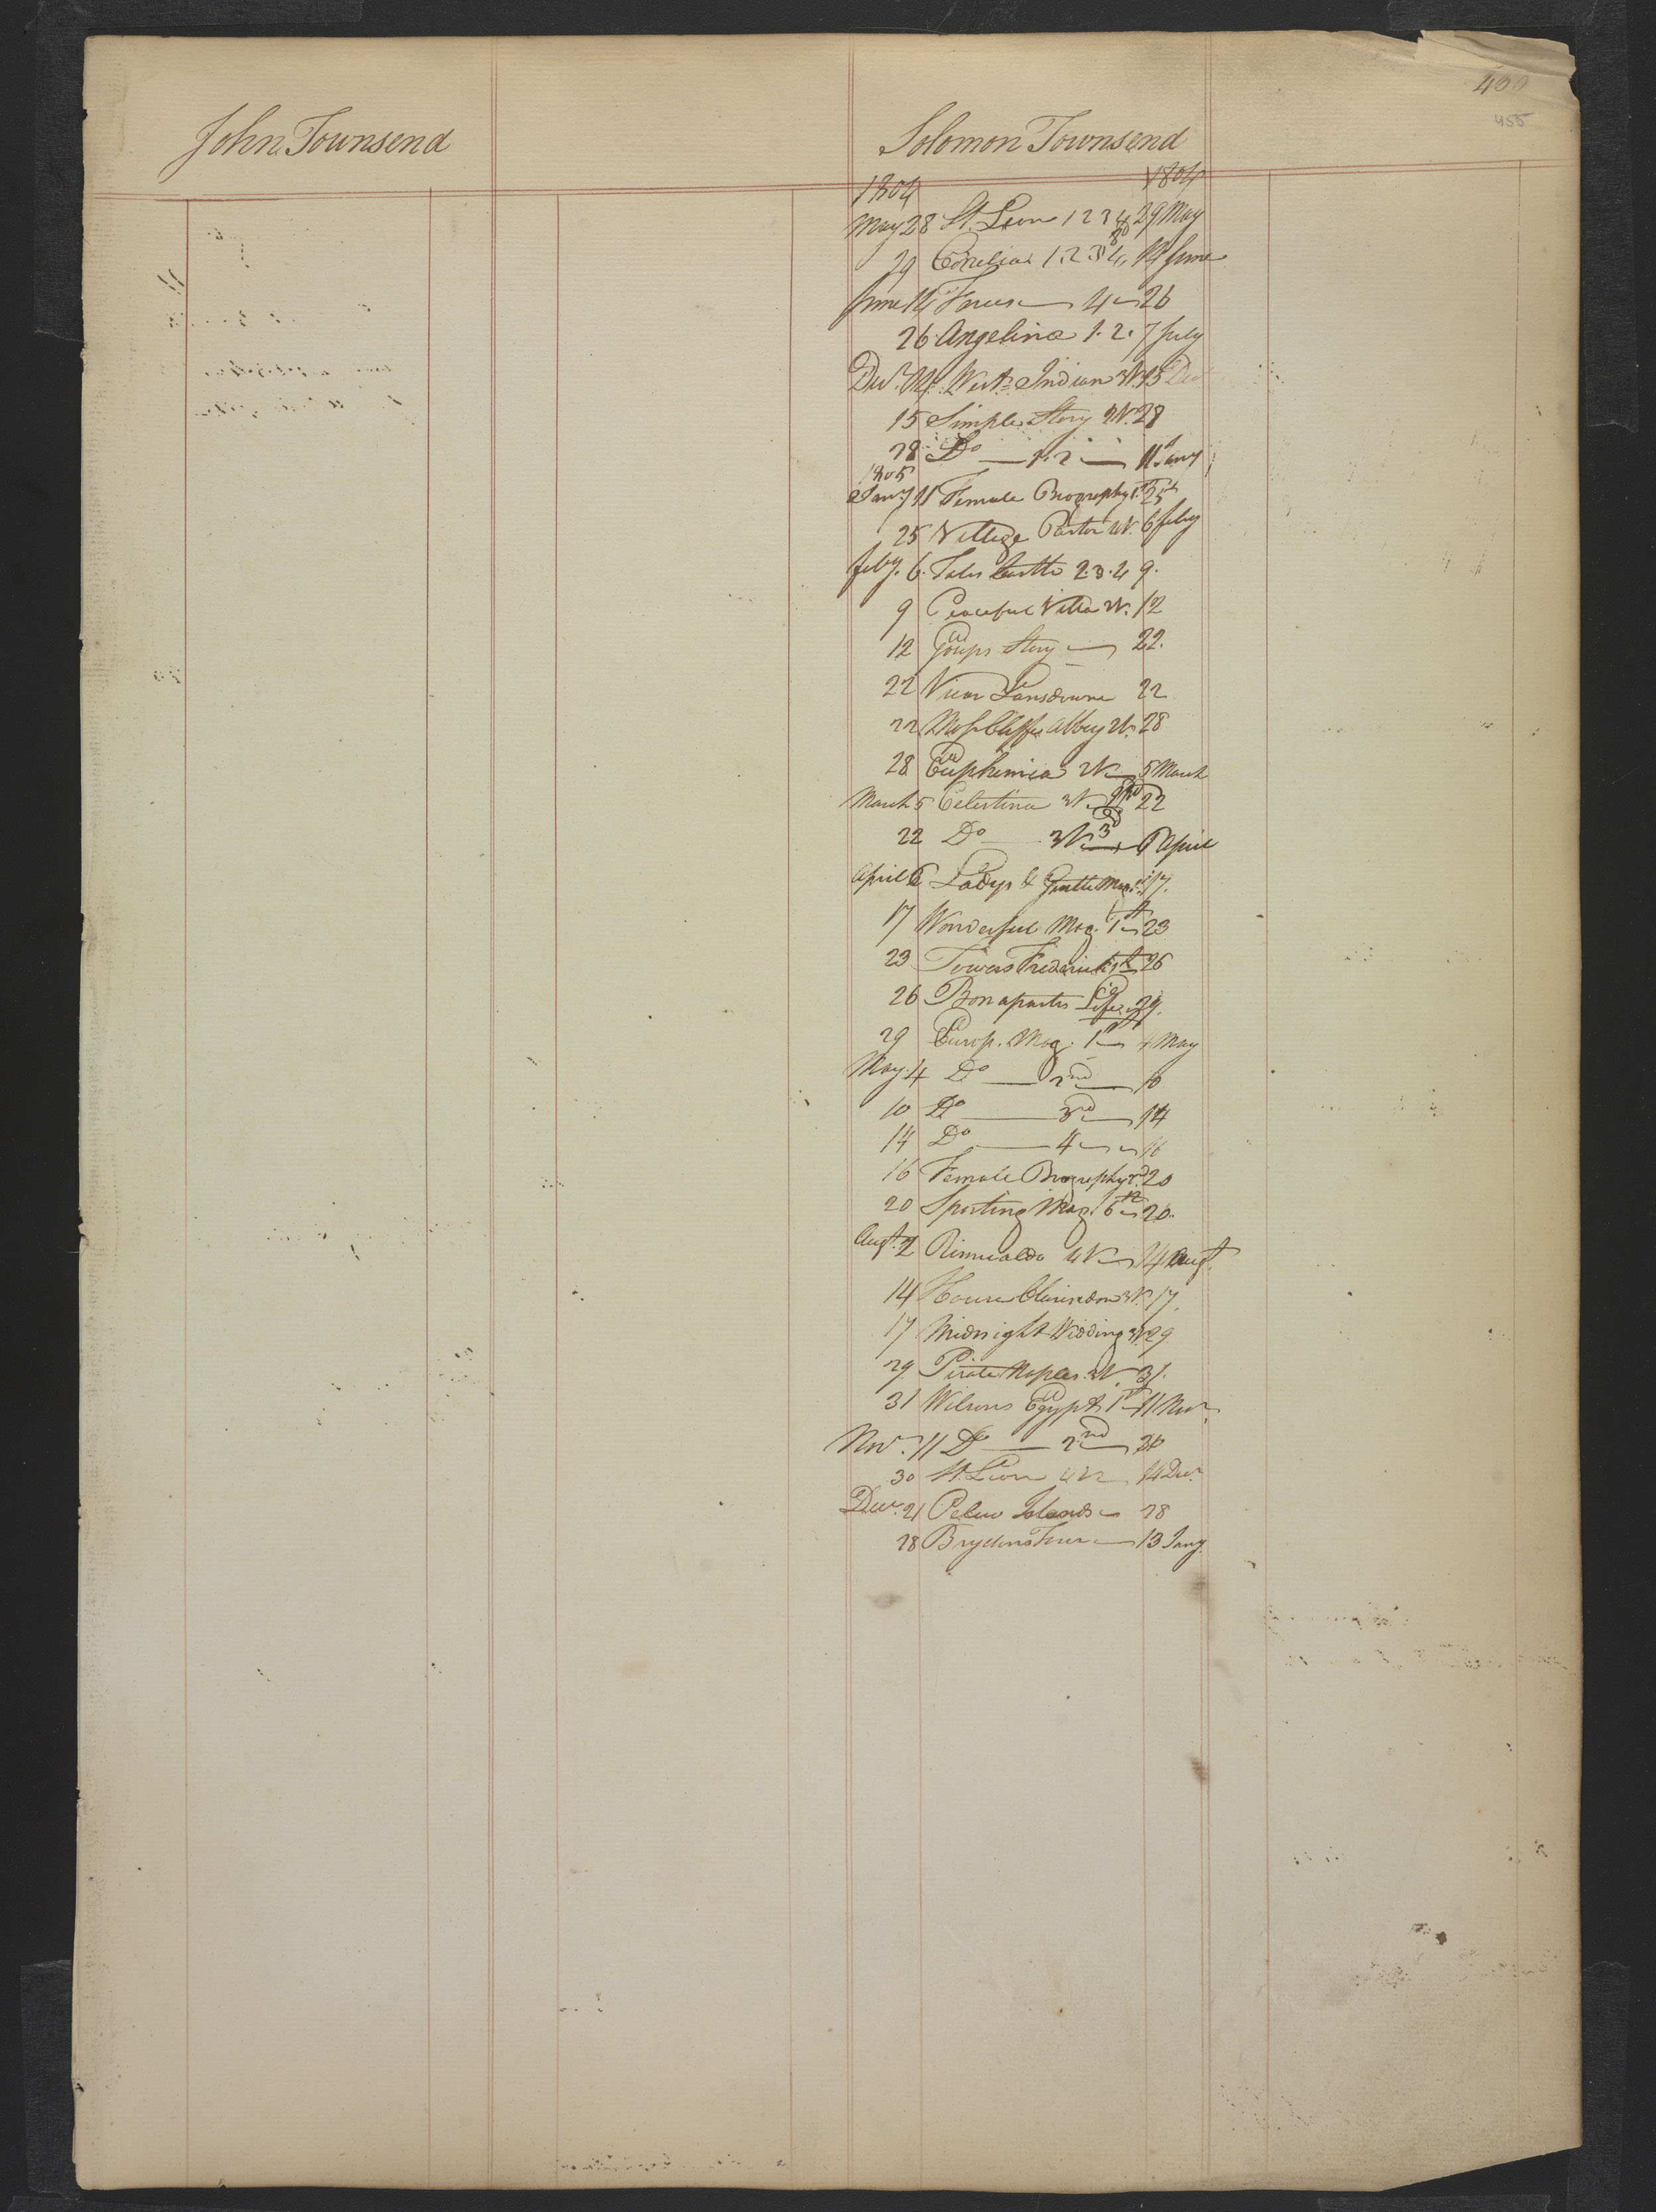 400
455
John Townsend
Solomon Townsend
1804 1804
May 28 St. Leon 1 2 3 4 29 May
29 Cecelia 1. 2. 3 14 June
June 14 4 26
26 Angelina 1. 2. 7 July
Decr. 14 West Indian 3V. 15 Decr
15 Simple Story 2V. 28
28 Do 1. 2 11 Jany
1805
Jany 11 Female Biography 1st 25
25 Village Pastor 2V. 6 feby
feby. 6. Tales Castle 2. 3. 4 9.
9 Peaceful Villa 2V. 12
12 Gosips Story 22.
22 Vicar Lansdowne 22
22 Mss Cliffe Abbey 2V. 28
28 Euphemia 2V 5 March
March 5 Celestina 3V 22
22 Do 3V. 3d 6 April
April 6 Ladys & Gentle Mag. 17.
17 Wonderful Mag. 1st 23
23 Towers Frederick 1st 26
26 Bonapartes Life 29.
29 Europ. Mag. 1st 4 May
May. 4 Do 2nd 10
10 Do 3rd 14
14 Do 4 16
16 Female Biography 2d. 20
20 Sporting Mag. 6th 20.
Augt. 2 Rimualdo 4V 14 Augt.
14 House Clarindon 3V. 17.
17 Midnight Wedding 3V. 29
29. Pirate Naples. 3V. 31.
31 Wilsons Egypt 1st 11 Novr.
Novr. 11 Do 2nd 30
30 St. Leon 4V 14 Decr.
Decr. 21 Pelew Islands 28
28 Brydens Tour 13 Jany.